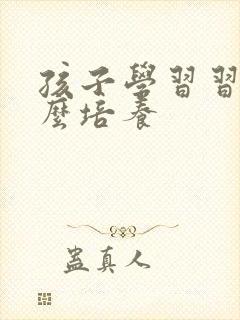 孩子學習習
麼培養
蠱真人